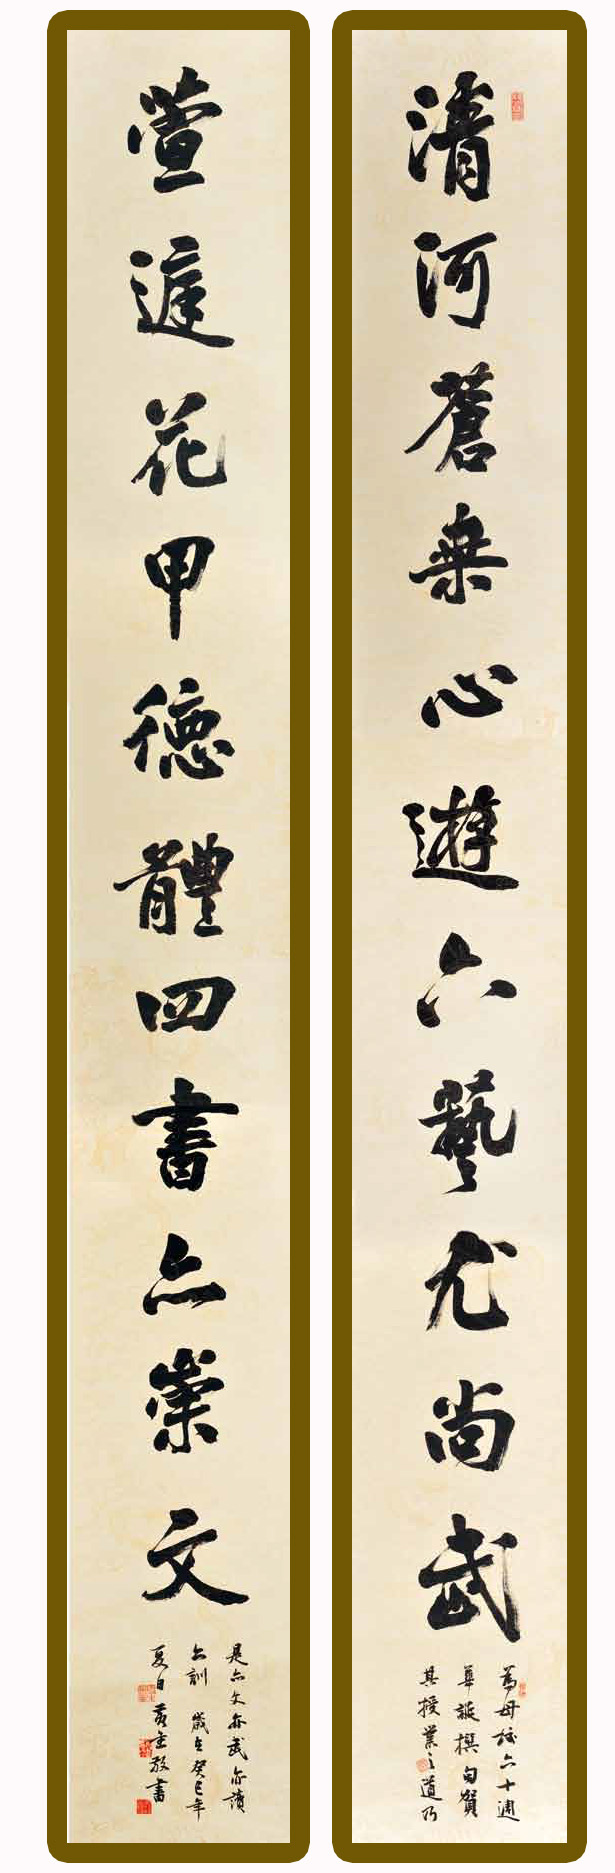 清河蒼桑心遊六藝尤尚武
為母校六十週
華誕撰句賀
其授業之道乃
萱遮花甲德體四書亦崇文
是亦文亦武亦讀
之訓 歲在癸巳年
夏日 黃金敬書